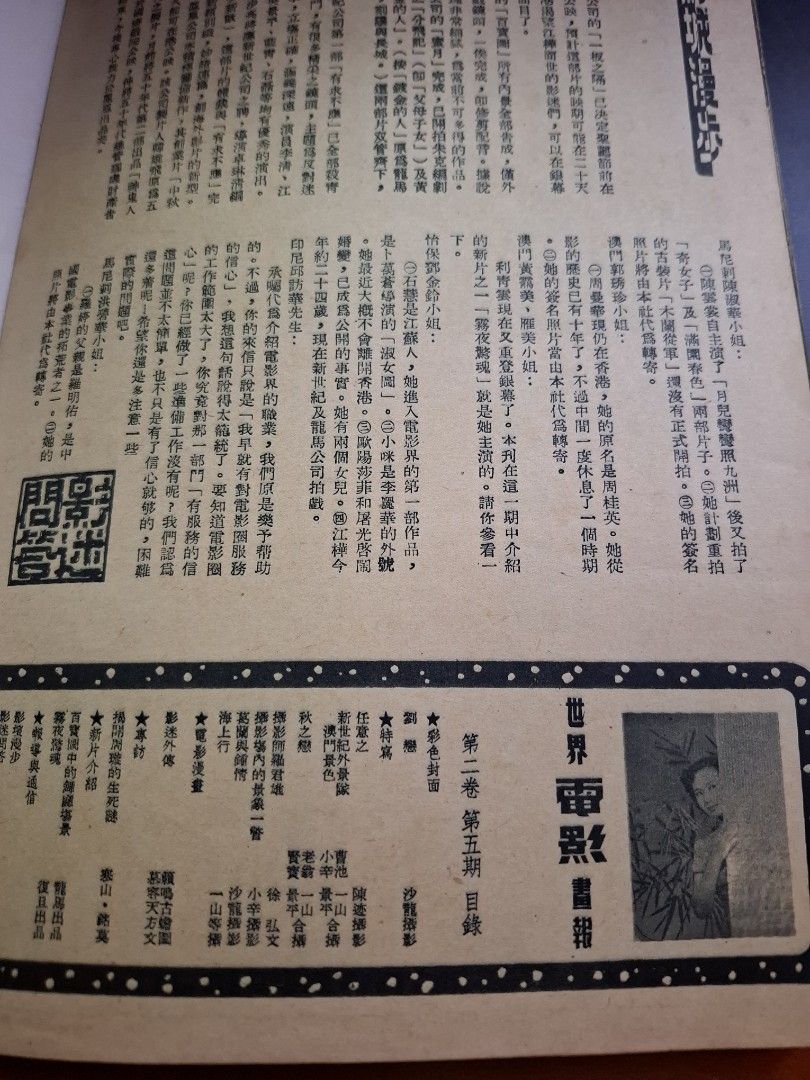 公司的「一板之隔」已決定聖誕節前在
公映，預計這部片的映期可能在二十天
渴望江樺面世的影迷們，可以在銀幕
面目了。
的「百寶圖」所有內景全部告成，僅外
鏡頭，一俟完成，即修剪配音。據說
非常細膩，為當前不可多得的作品。
司的「蜜月」完成，已開拍朱克編劇
「分飛記」（即「父母子女」）及黃
的人」。（按「鍍金的人」原為龍馬
劉瓊與長城。）這兩部片双管齊下，
紀公司第一部「有求不應」已全部殺青
門，有很多精采之鏡頭，主題為反對迷
，立場正確，涵義深遠，演員李清、江
平、藍夢、石磊等均有優秀的演出。
馬尼剌陳淑華小姐：
㊀陳雲裳自主演了「月兒彎彎照九洲」後又拍了
「奇女子」及「滿園春色」兩部片子。㊁她計劃重拍
的古裝片「木蘭從軍」還沒有正式開拍。㊂她的簽名
照片將由本社代為轉寄。
澳門郭琇珍小姐：
㊀周曼華現仍在香港，她的原名是周桂英。她從
影的歷史已有十年了，不過中間一度休息了一個時期
。㊁她的簽名照片當由本社代為轉寄。
澳門黃露美、雁美小姐：
利青雲現在又重登銀幕了。本刊在這一期中介紹
的新片之一「霧夜驚魂」就是她主演的。請你參看一
下。
怡保鄧金鈴小姐：
㊀石慧是江蘇人，她進入電影界的第一部作品，
是卜萬蒼導演的「淑女圖」。㊁小咪是李麗華的外號
。她最近大概不會離開香港。㊂歐陽莎菲和屠光啓鬧
婚變，已成為公開的事實。她有兩個女兒。㊃江樺今
年約二十四歲，現在新世紀及龍馬公司拍戲。
印尼邱訪華先生：
承囑代為介紹電影界的職業，我們原是樂予帮助
的。不過，你的來信只說是「我早就有對電影圈服務
的信心」，我想這句話說得太籠統了。要知道電影圈
的工作範圍太大了，你究竟對那一部門「有服務的信
心」呢？你已經做了一些準備工作沒有呢？我們認為
這問題並不太簡單，也不只是有了信心就够的，困難
還多着呢！希望你還是多注意一些
實際的問題吧。
馬尼剌洪碧華小姐：
㊀羅婷的父親是羅明佑，是中
國電影事業的拓荒者之一。㊁她的
照片將由本社代為轉寄。
影迷
問答
世界電影畫報
第二卷 第五期 目錄
★彩色封面
劉戀 沙龍攝影
★特寫
任意之 陳迹攝影
新世紀外景隊 曹池 一山
澳門景色 小辛 景平合攝
秋之戀 老翁 一山
賢寶 景平合攝
攝影師羅君雄 徐弘文
攝影場內的景象一瞥 小辛攝影
葛蘭與鍾情 沙龍攝影
海上行 一山等攝
★電影漫畫
影迷外傳 賴鳴古繪圖
慕容天方文
★專訪
揭開周璇的生死謎 寒山·銘莫
★新片介紹
百寶圖中的錦繡場景 龍馬出品
霧夜驚魂 復旦出品
★報導與通信
影壇漫步
影迷問答